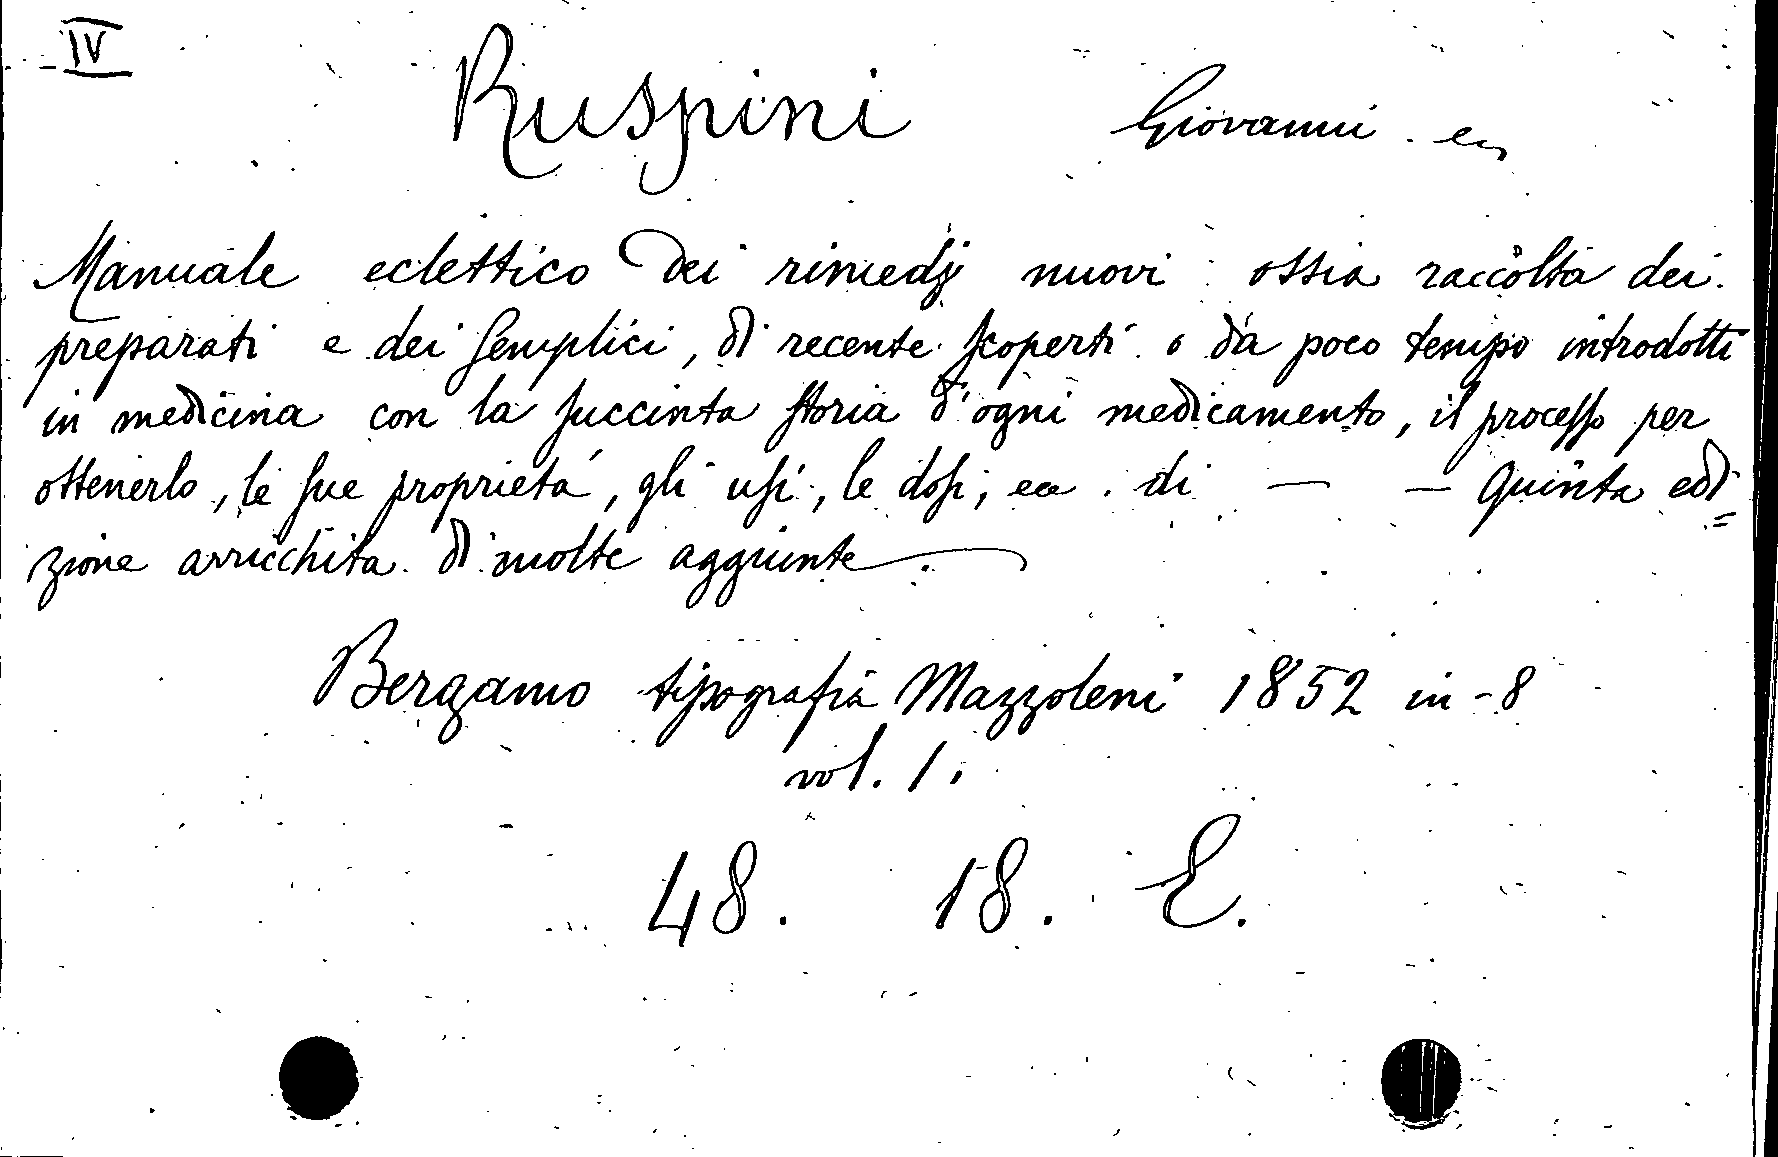 IV
Ruspini Giovanni.
Manuale eclettico dei rimedj nuovi ossia raccolta dei
preparati e dei semplici, di recente scoperti o da poco tempo introdotti
in medicina con la succinta storia d'ogni medicamento, il processo per
ottenerlo, le sue proprietá, gli usi, le dosi, ec. di — — Quinta edi=
zione arricchita di molte aggiunte.
Bergamo tipografia Mazzoleni 1852 in-8
vol. 1.
48. 18. E.